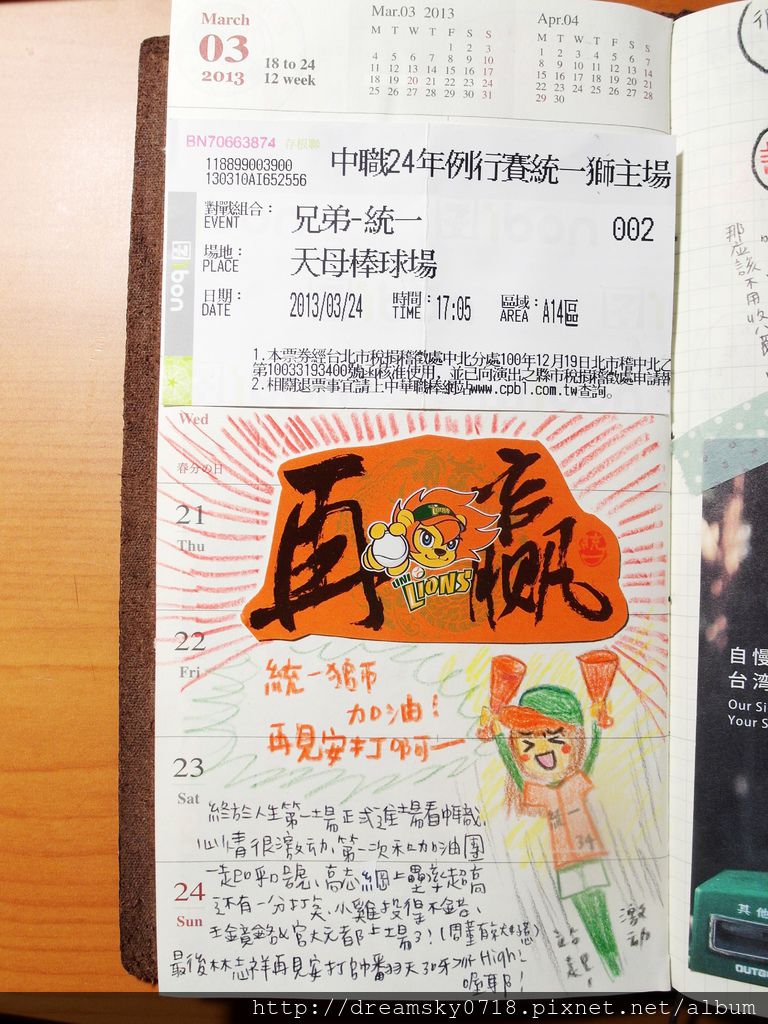 March
03
2013
18 to 24
12 week
Mar.03 2013
M T W T F S S
1 2 3
4 5 6 7 8 9 10
11 12 13 14 15 16 17
18 19 20 21 22 23 24
25 26 27 28 29 30 31
Apr.04
M T W T F S S
1 2 3 4 5 6 7
8 9 10 11 12 13 14
15 16 17 18 19 20 21
22 23 24 25 26 27 28
29 30
BN70663874 存根聯
118899003900
130310AI652556
中職24年例行賽統一獅主場
對戰組合：
EVENT
兄弟-統一
002
場地：
PLACE
天母棒球場
日期：
DATE
2013/03/24
時間：
TIME
17:05
區域：
AREA
A14區
ibon
1.本票券經台北市稅捐稽徵處中北分處100年12月19日北市稽中北乙
第10033193400號函核准使用，並已向演出之縣市稅捐稽徵處申請報
2.相關退票事宜請上中華職棒網站www.cpbl.com.tw查詢。
Wed
春分の日
21
Thu
再贏
LIONS
UNI
LIONS
統
22
Fri
統一獅
加油！
再見安打啊一
23
Sat
統一
34
24
Sun
終於人生第一場正式進場看中職、
心情很激动、第一次和加油團
一起呼口號、高志綱上壘率超高
还有一分打笑、小雞投得不錯、
王鏡銘&官大元都上場了！
最後林志祥再見安打帥翻天
High！
喔耶！
激动
那应該不用收
自慢
台湾
Our Si
Your S
其他
OUTGO
http://dreamsky0718.pixnet.net/album